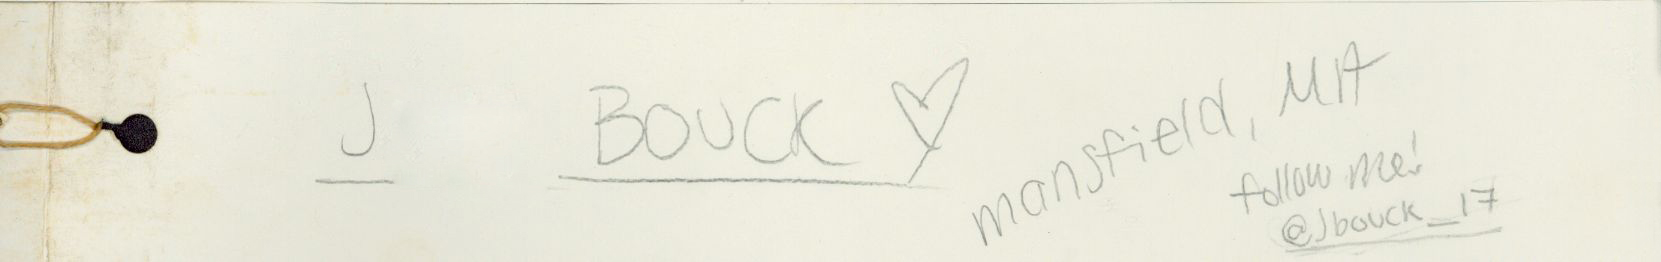 J BOUCK ♡
mansfield, MA
follow me!
@Jbouck_17